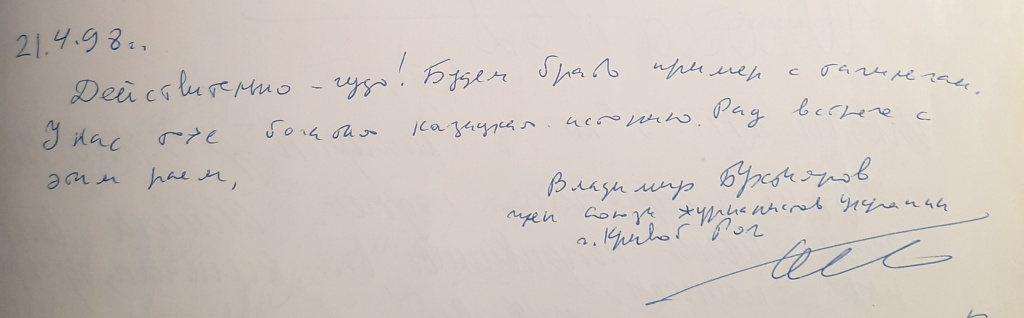 21.4.98 г.
Действительно - чудо! Будем брать пример с
У нас тоже богатая казацкая история. Рад встрече с
этим раем,
Владимир Бухтияров
член союза журналистов Украины
г. Кривой Рог